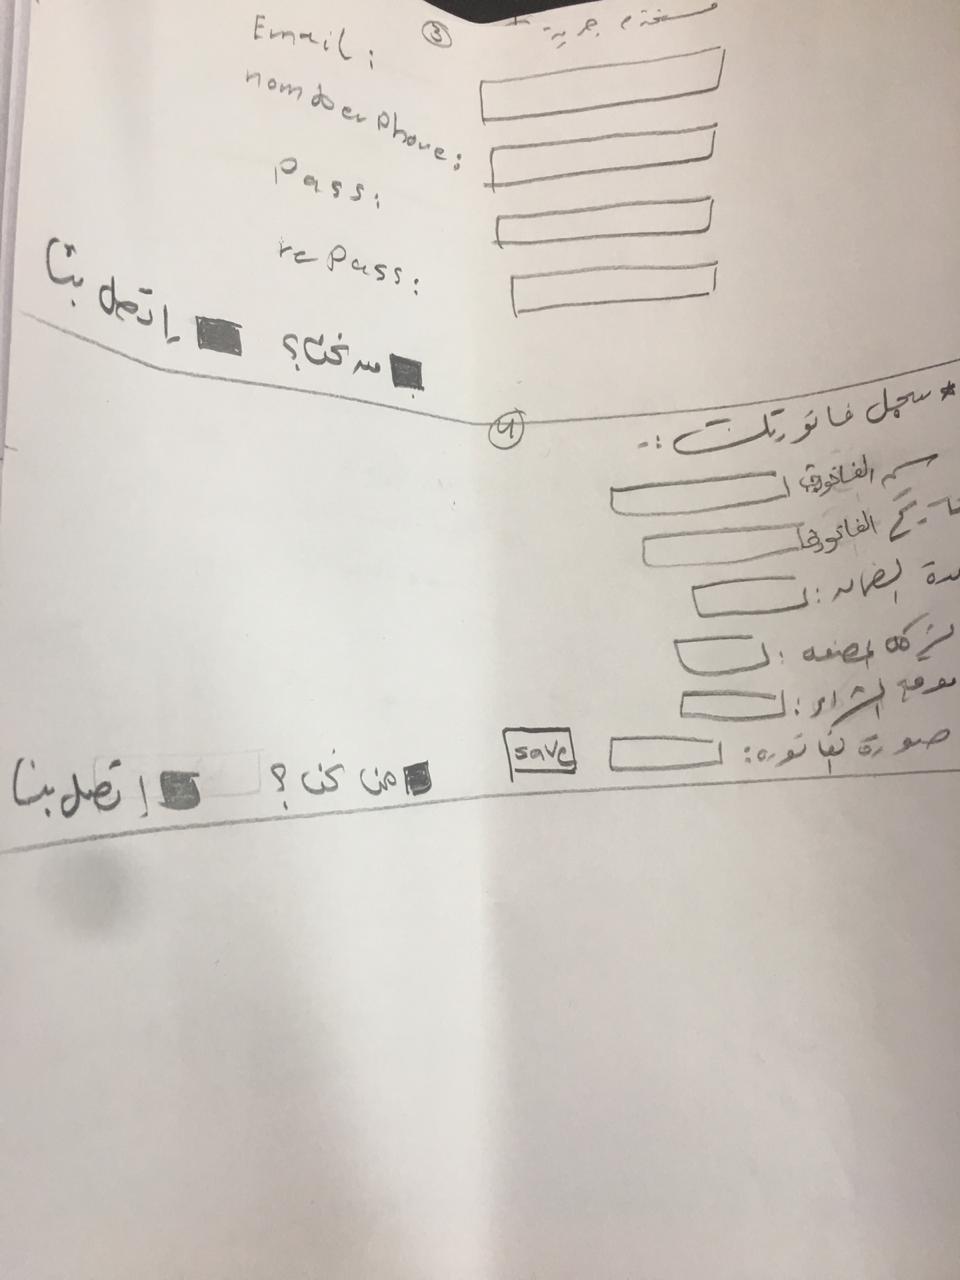 ③
Email:
nomber phone:
Pass:
re Pass:
نحن؟
إتصل بنا
④
* سجل فاتورتك :-
اسم الفاتورة
تاريخ الفاتورة
مدة الضمان:
الشركة المصنعه:
موقع الشراء:
صورة الفاتوره:
save
من نحن؟
إتصل بنا